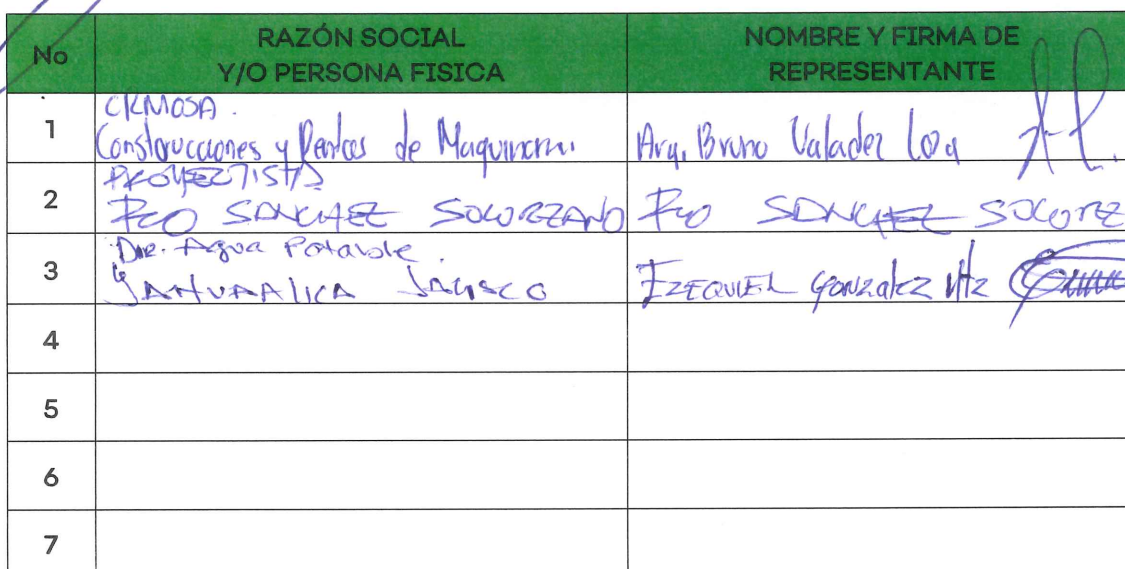 No
RAZÓN SOCIAL
Y/O PERSONA FISICA
NOMBRE Y FIRMA DE
REPRESENTANTE
1
CRMOSA.
Construcciones y Rentas de Maquinaria.
Arq. Bruno Valadez Loza
2
PROYECTISTA
Fco SANCHEZ SOLORZANO
Fco SANCHEZ SOLORZ
3
Dir. Agua Potable
JALISCO
EZEQUIEL Gonzalez Htz
4
5
6
7